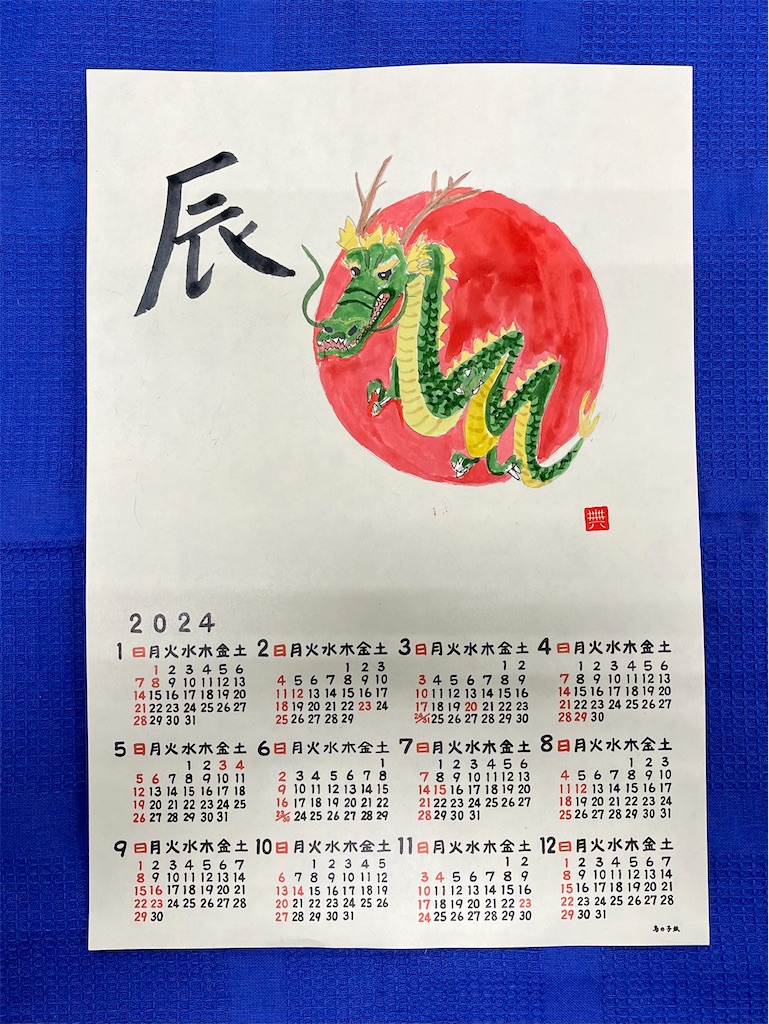 辰
2024
1 日月火水木金土
1 2 3 4 5 6
7 8 9 10 11 12 13
14 15 16 17 18 19 20
21 22 23 24 25 26 27
28 29 30 31
2 日月火水木金土
1 2 3
4 5 6 7 8 9 10
11 12 13 14 15 16 17
18 19 20 21 22 23 24
25 26 27 28 29
3 日月火水木金土
1 2
3 4 5 6 7 8 9
10 11 12 13 14 15 16
17 18 19 20 21 22 23
24/31 25 26 27 28 29 30
4 日月火水木金土
1 2 3 4 5 6
7 8 9 10 11 12 13
14 15 16 17 18 19 20
21 22 23 24 25 26 27
28 29 30
5 日月火水木金土
1 2 3 4
5 6 7 8 9 10 11
12 13 14 15 16 17 18
19 20 21 22 23 24 25
26 27 28 29 30 31
6 日月火水木金土
1
2 3 4 5 6 7 8
9 10 11 12 13 14 15
16 17 18 19 20 21 22
23/30 24 25 26 27 28 29
7 日月火水木金土
1 2 3 4 5 6
7 8 9 10 11 12 13
14 15 16 17 18 19 20
21 22 23 24 25 26 27
28 29 30 31
8 日月火水木金土
1 2 3
4 5 6 7 8 9 10
11 12 13 14 15 16 17
18 19 20 21 22 23 24
25 26 27 28 29 30 31
9 日月火水木金土
1 2 3 4 5 6 7
8 9 10 11 12 13 14
15 16 17 18 19 20 21
22 23 24 25 26 27 28
29 30
10 日月火水木金土
1 2 3 4 5
6 7 8 9 10 11 12
13 14 15 16 17 18 19
20 21 22 23 24 25 26
27 28 29 30 31
11 日月火水木金土
1 2
3 4 5 6 7 8 9
10 11 12 13 14 15 16
17 18 19 20 21 22 23
24 25 26 27 28 29 30
12 日月火水木金土
1 2 3 4 5 6 7
8 9 10 11 12 13 14
15 16 17 18 19 20 21
22 23 24 25 26 27 28
29 30 31
鳥の子紙